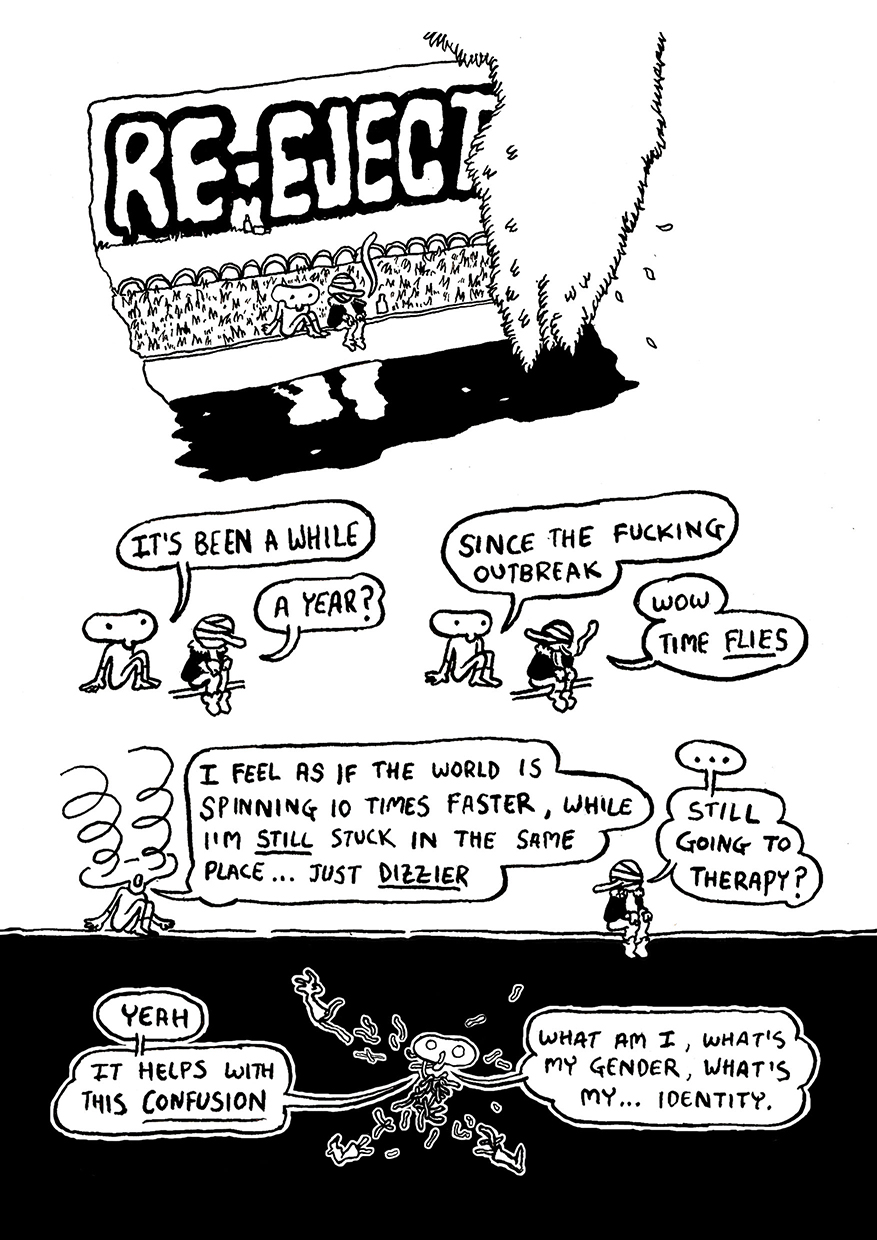 RE-EJECT
IT'S BEEN A WHILE
A YEAR?
SINCE THE FUCKING
OUTBREAK
WOW
TIME FLIES
I FEEL AS IF THE WORLD IS
SPINNING 10 TIMES FASTER, WHILE
I'M STILL STUCK IN THE SAME
PLACE... JUST DIZZIER
...
STILL
GOING TO
THERAPY?
YEAH
IT HELPS WITH
THIS CONFUSION
WHAT AM I, WHAT'S
MY GENDER, WHAT'S
MY... IDENTITY.